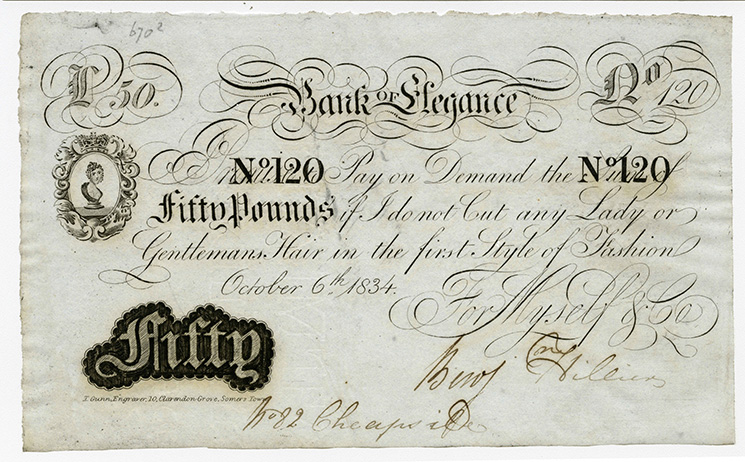 6702
£ 50.
Bank OF Elegance
No 120
I Promise to Pay on Demand the Sum of
No.120 No.120
Fifty Pounds if I do not Cut any Lady or
Gentlemans Hair in the first Style of Fashion
October 6th. 1834.
For Myself & Co
Fifty
Benjmn Hillier
T. Gunn, Engraver, 10, Clarendon Grove, Somers Town
No 82 Cheapside